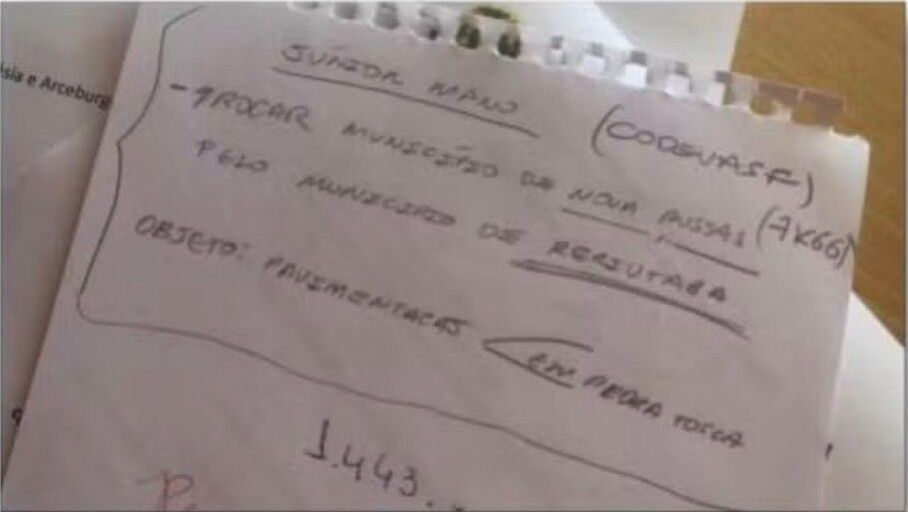 Ásia e Arceburg
JÚNIOR MANO
(CODEVASF)
- TROCAR MUNICÍPIO DE NOVA RUSSAS (7K66)
PELO MUNICÍPIO DE RERIUTABA
OBJETO: PAVIMENTAÇÃO EM PEDRA TOSCA
1.443.